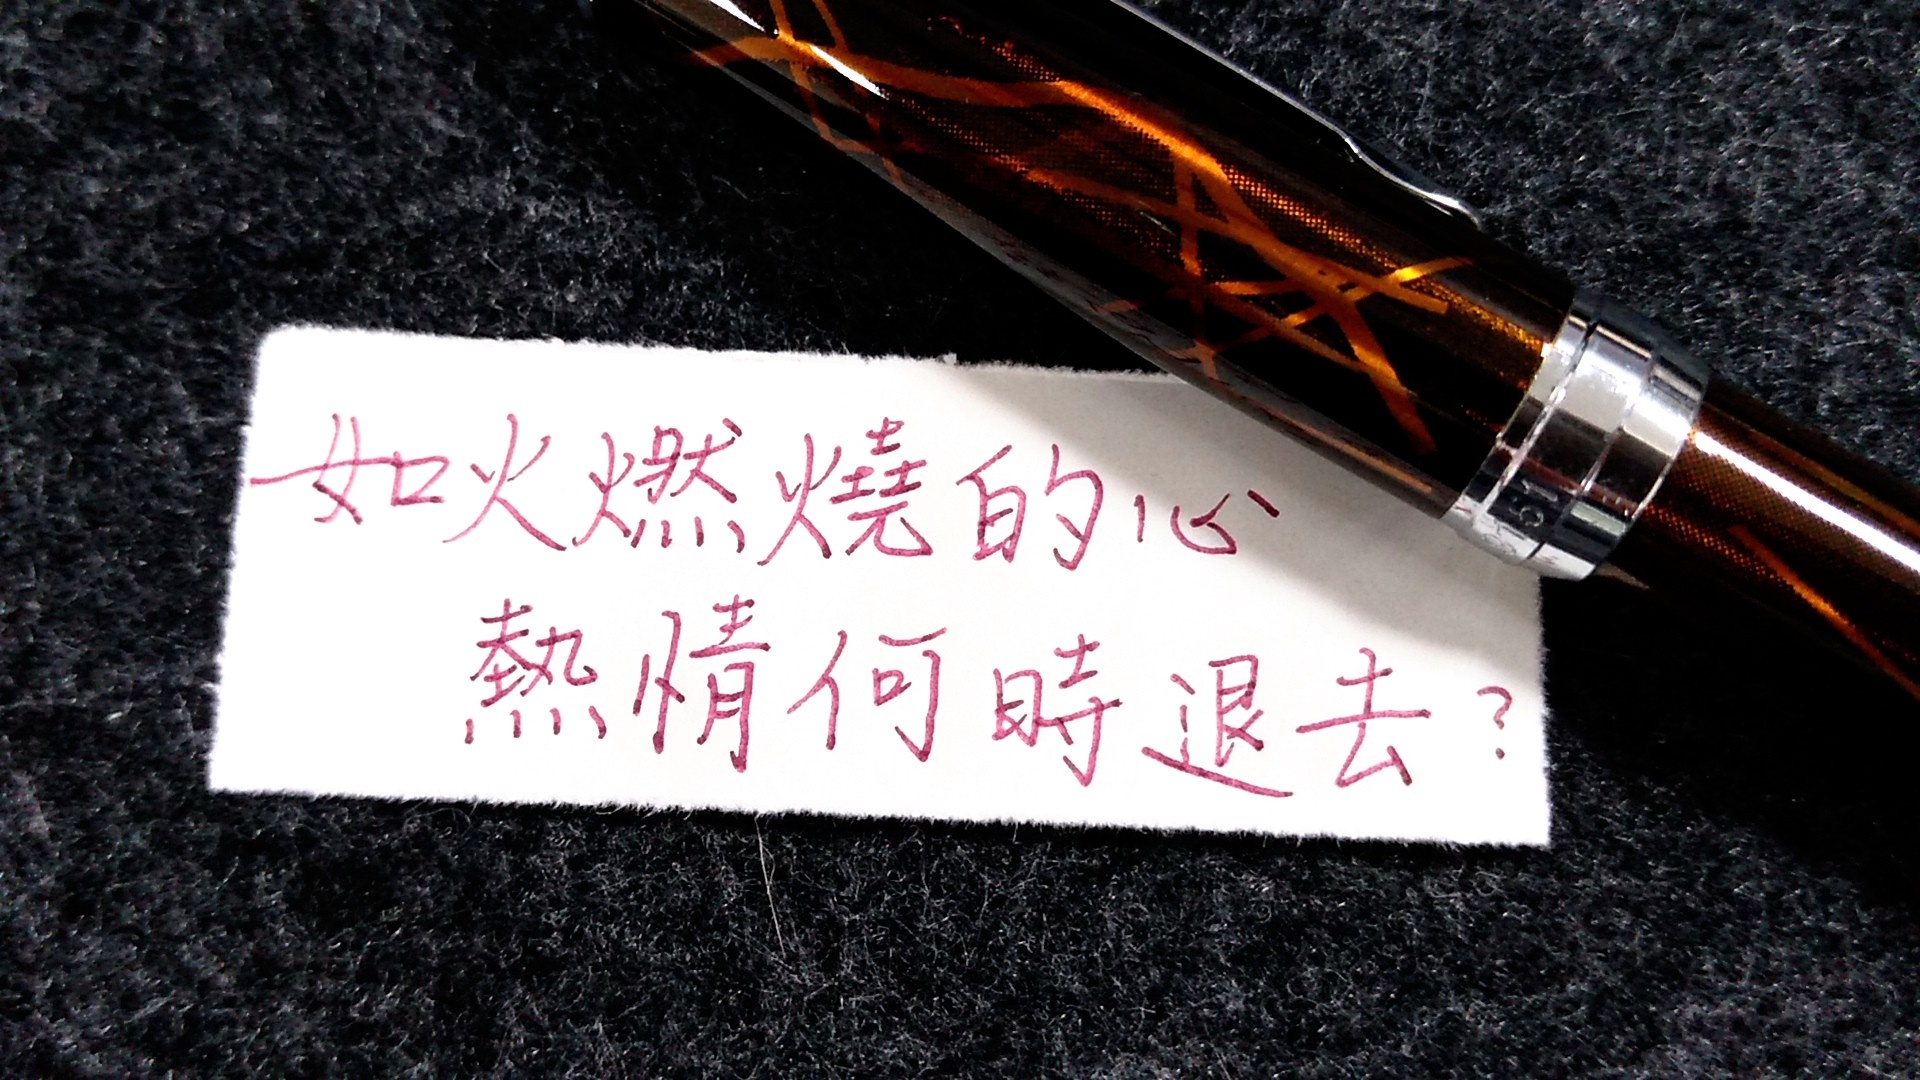 如火燃燒的心
熱情何時退去?